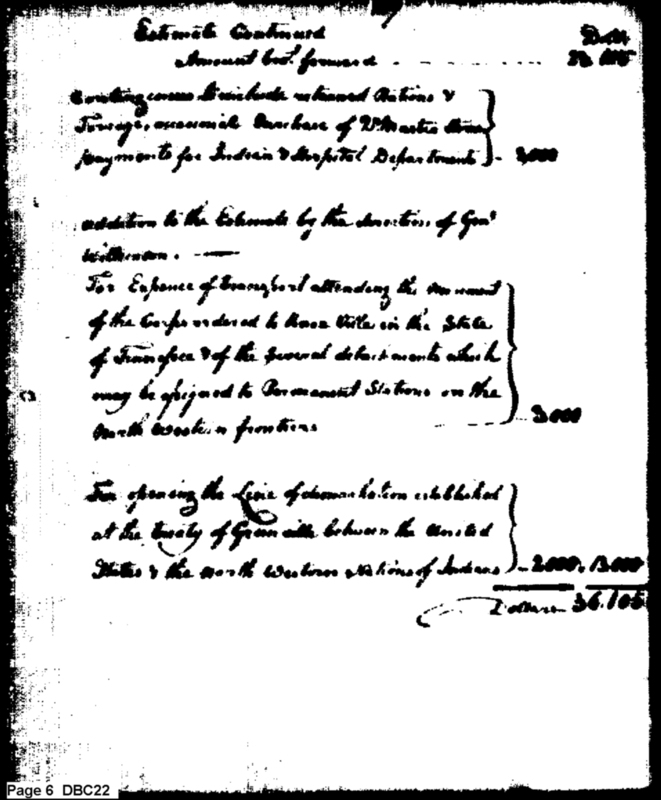 Estimate Continued
Dolls
Amount bro.t forward
Contingencies to include retained Rations &
Forage, occasional Purchase of Qr Master Stores
payments for Indian & Hospital Departments
addition to the Estimate by the direction of Genl
Wilkinson.
For Expence of transport attending the movement
of the Corps ordered to Knox Ville in the State
of Tennessee & of the several detachments which
may be assigned to Permanent Stations on the
North Western frontiers
For opening the Line of demarkation established
at the treaty of Greenville between the United
States & the North Western Nations of Indians 2.000. 13.000
Dollars 36.105
Page 6 DBC22